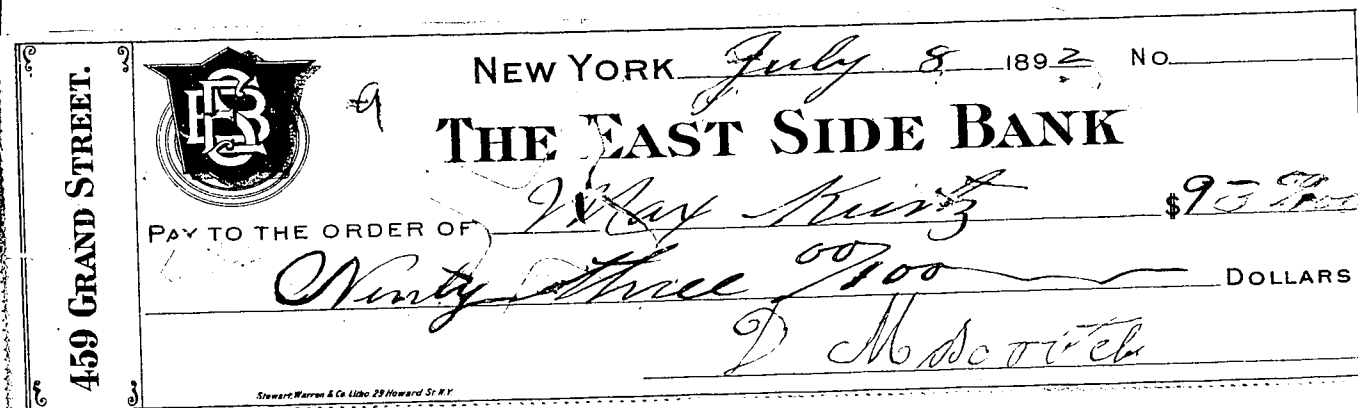 459 GRAND STREET.
EBS
NEW YORK July 8 1892 No
9
THE EAST SIDE BANK
PAY TO THE ORDER OF Max Kurtz $93 00/100
Ninty three 00/100 DOLLARS
D Moscovitch
Stewart Warren & Co Litho 29 Howard St N.Y.